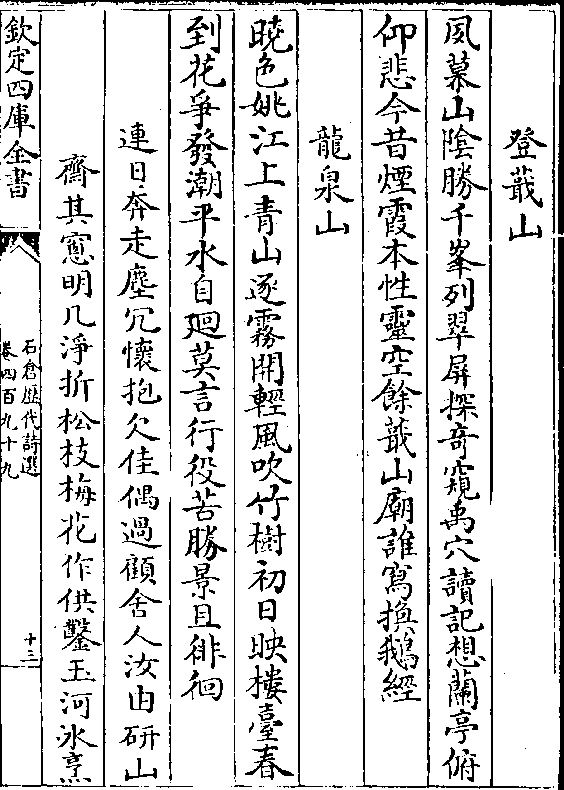 登蕺山
夙慕山陰勝千峯列翠屏探奇窺禹穴讀記想蘭亭俯
仰悲今昔煙霞本性靈空餘蕺山廟誰寫換鵝經
龍泉山
曉色姚江上青山逐霧開輕風吹竹樹初日映樓臺春
到花爭發潮平水自廻莫言行役苦勝景且徘徊
連日奔走塵冗懷抱欠佳偶過顧舍人汝由研山
齋其窻明几淨折松枝梅花作供鑿玉河氷烹
欽定四庫全書
石倉歷代詩選
卷四百九十九
十三